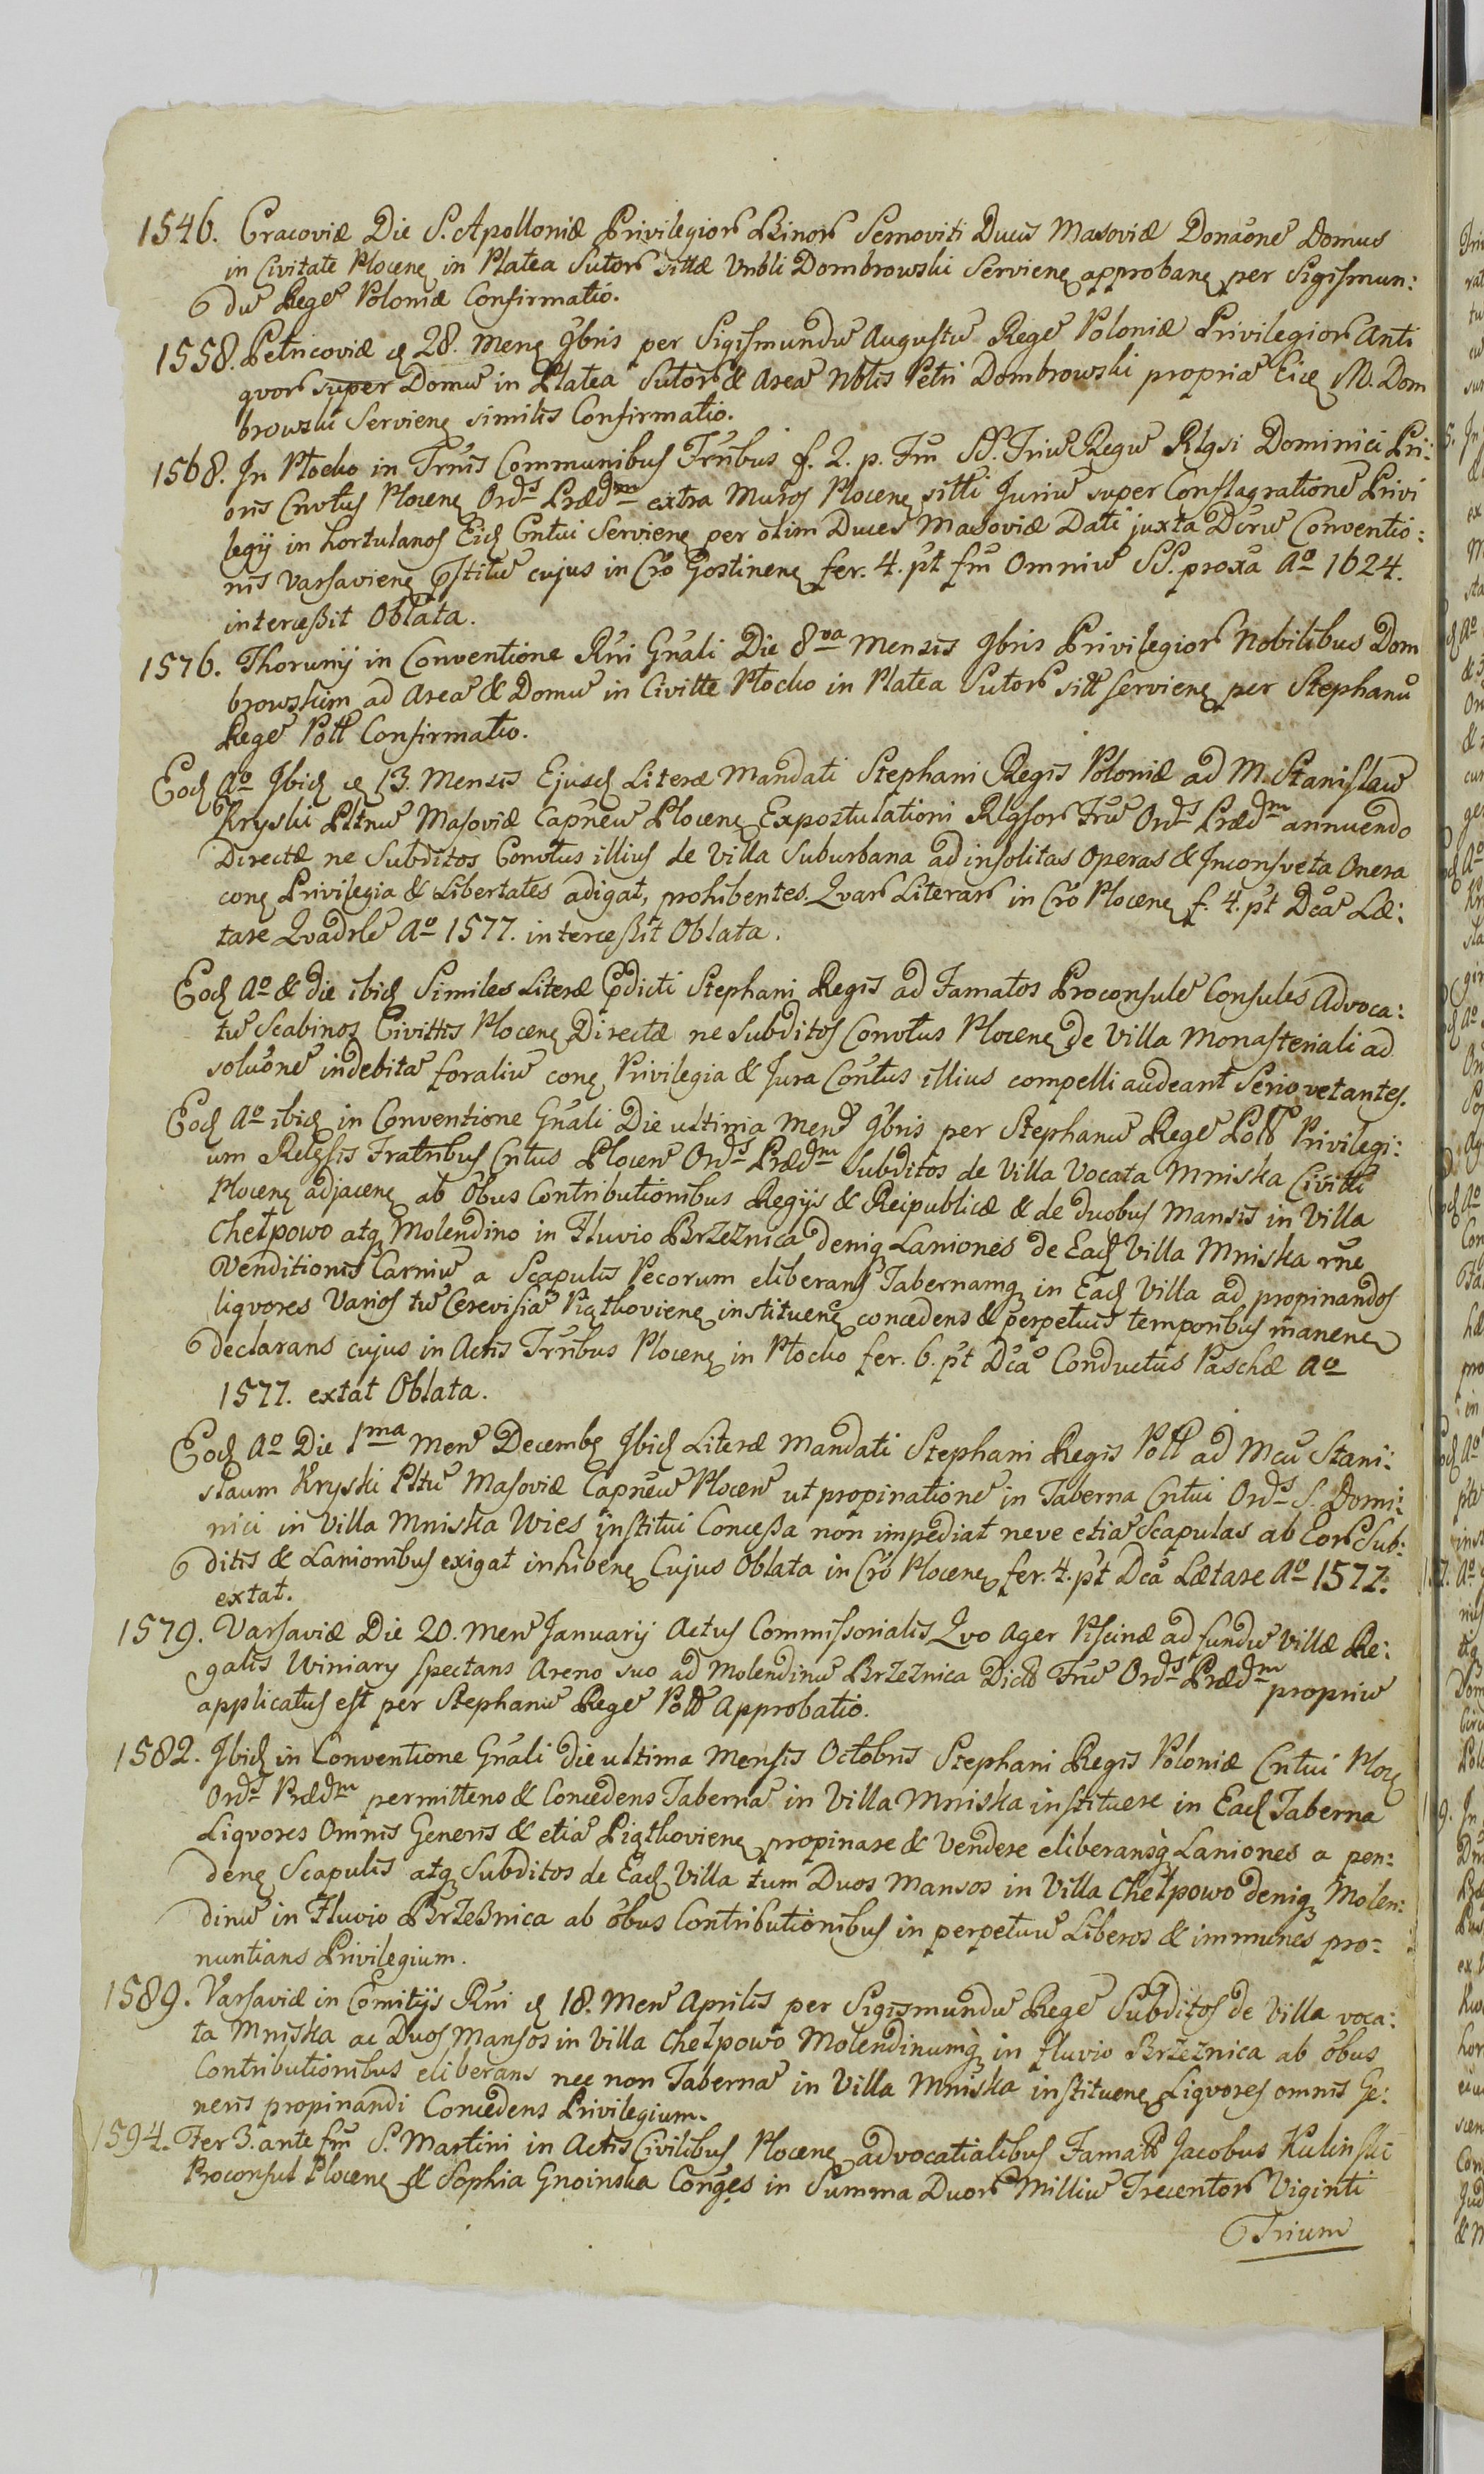 1546. Cracoviæ Die S. Apolloniæ Privilegior Binor Semoviti Ducis Masoviæ Donãone Domus
in Civitate Plocenȩ in Platea Sutor sittæ Vnbli Dombrowski Servienȩ approbanȩ per Sigismun:
du Rege Poloniæ Confirmatio.
1558. Petricoviæ ȩ 28. Menȩ 9bris per Sigismundu Augustu Rege Poloniæ Privilegior Anti
qvor super Domu in Platea Sutor & Area Nbtis Petri Dombrowski propria Eiȩ M. Dom
browski Servienȩ similis Confirmatio.
1568. In Płocko in Trnis Communibus Trnbus f. 2. p. Fm SS. Triu Regu Rlgsi Dominici Pri:
oris Cnvtus Plocenȩ Ords Prædm extra Muros Plocenȩ sitti Juriu super Conflagratione Privi
legij in hortulanos Eidȩ Cntui Servienȩ per olim Duces Masoviæ Dati juxta Dcru Conventio:
nis Varsavienȩ cujus in Cro Gostinenȩ fer. 4. pt fm Omniu SS. proxa Ao 1624.
interceßit Oblata.
1576. Thorunij in Conventione Rni Gnali Die 8va Mensis 9bris Privilegior Nobilibus Dom
browskim ad Area & Domu in Civitte Płocko in Platea Sutor sitt servienȩ per Stephanu
Rege Poll Confirmatio.
Eodȩ Ao Ibidȩ ȩ 13. Mensis Ejusdȩ Literæ Mandati Stephani Regis Poloniæ ad M. Stanislaw
Kryski Pltnu Masoviæ Capneu Plocenȩ Expostulationi Rlgsor Fru Ords Prædm annuendo
Directæ ne Subditos Convtus illius de Villa Suburbana ad insolitas Operas & Inconsveta Onera
conȩ Privilegia & Libertates adigat, prohibentes. Qvar Literar in Cro Plocenȩ f. 4. pt Dca Læ:
tare Qvadrle Ao 1577. interceßit Oblata.
Eodȩ Ao & die ibidȩ Similes Literæ Edicti Stephani Regis ad Famatos Proconsule Consules Advoca:
tu Scabinos Civittis Plocenȩ Directæ ne Subditos Convtus Plocenȩ de Villa Monasteriali ad
soluõne indebita foraliu conȩ Privilegia & Jura Contus illius compelli audeant Serio vetantes.
Eodȩ Ao ibidȩ in Conventione Gnali Die ultima Men 9bris per Stephanu Rege Poll Privilegi:
um Relgsis Fratribus Cntus Plocen Ords Prædm Subditos de Villa Vocata Mniska Civitti
Plocenȩ adjacenȩ ab Obus Contributionibus Regijs & Reipublicæ & de duobus Mansis in Villa
Chełpowo atq Molendino in Fluvio Brzeznica deniq Laniones de Eadȩ Villa Mniska rne
Venditionis Carniu a Scapulis Pecorum eliberans Tabernamq in Eadȩ Villa ad propinandos
liqvores Varios tu Cerevisia Piąthovienȩ instituenȩ concedens & perpetuis temporibus manenȩ
declarans cujus in Actis Trnbus Plocenȩ in Płocko fer. 6. pt Dca Conductus Paschæ Ao
1577. extat Oblata.
Eodȩ Ao Die 1ma Men Decembȩ Ibidȩ Literæ Mandati Stephani Regis Poll ad Mcu Stani:
slaum Kryski Pltu Masoviæ Capneu Plocen ut propinatione in Taberna Cntui Ords S. Domi:
nici in Villa Mniska Wies institui Conceßa non impediat neve etia Scapulas ab Eor Sub:
ditis & Lanionibus exigat inhibenȩ Cujus Oblata in Cro Plocenȩ fer. 4. pt Dca Lætare Ao 1577.
extat.
1579. Varsaviæ Die 20. Men Januarij Actus Commissorialis Qvo Ager Piscinæ ad fundu Villæ Re:
galis Winiary spectans Areno suo ad Molendinu Brzeznica Dict Fru Ords Prædm propriu
applicatus est per Stephanu Rege Poll Approbatio.
1582. Ibidȩ in Conventione Gnali die ultima Mensis Octobris Stephani Regis Poloniæ Cntui Plocȩ
Ords Prædm permittens & Concedens Taberna in Villa Mniska instituere in Eadȩ Taberna
Liqvores Omnis Generis & etia Piąthovienȩ propinare & Vendere eliberansq Laniones a pen:
denȩ Scapulis atq Subditos de Eadȩ Villa tum Duos Mansos in Villa Chełpowo deniq Molen:
dinu in Fluvio Brzeßnica ab obus Contributionibus in perpetuu Liberos & immunes pro:
nuntians Privilegium.
1589. Varsaviæ in Comitijs Rni ȩ 18. Men Aprilis per Sigismundu Rege Subditos de Villa voca:
ta Mniska ac Duos Mansos in Villa Chełpowo Molendinumq in fluvio Brzeznica ab obus
Contributionibus eliberans nec non Taberna in Villa Mniska instituenȩ Liqvores omnis Ge:
neris propinandi Concedens Privilegium.
1594. Fer 3. ante fm S. Martini in Actis Civilibus Plocenȩ advocatialibus Famats Jacobus Kulinski
Proconsul Plocenȩ & Sophia Gnoinska Conges in Summa Duor Milliu Trecentor Viginti
Trium